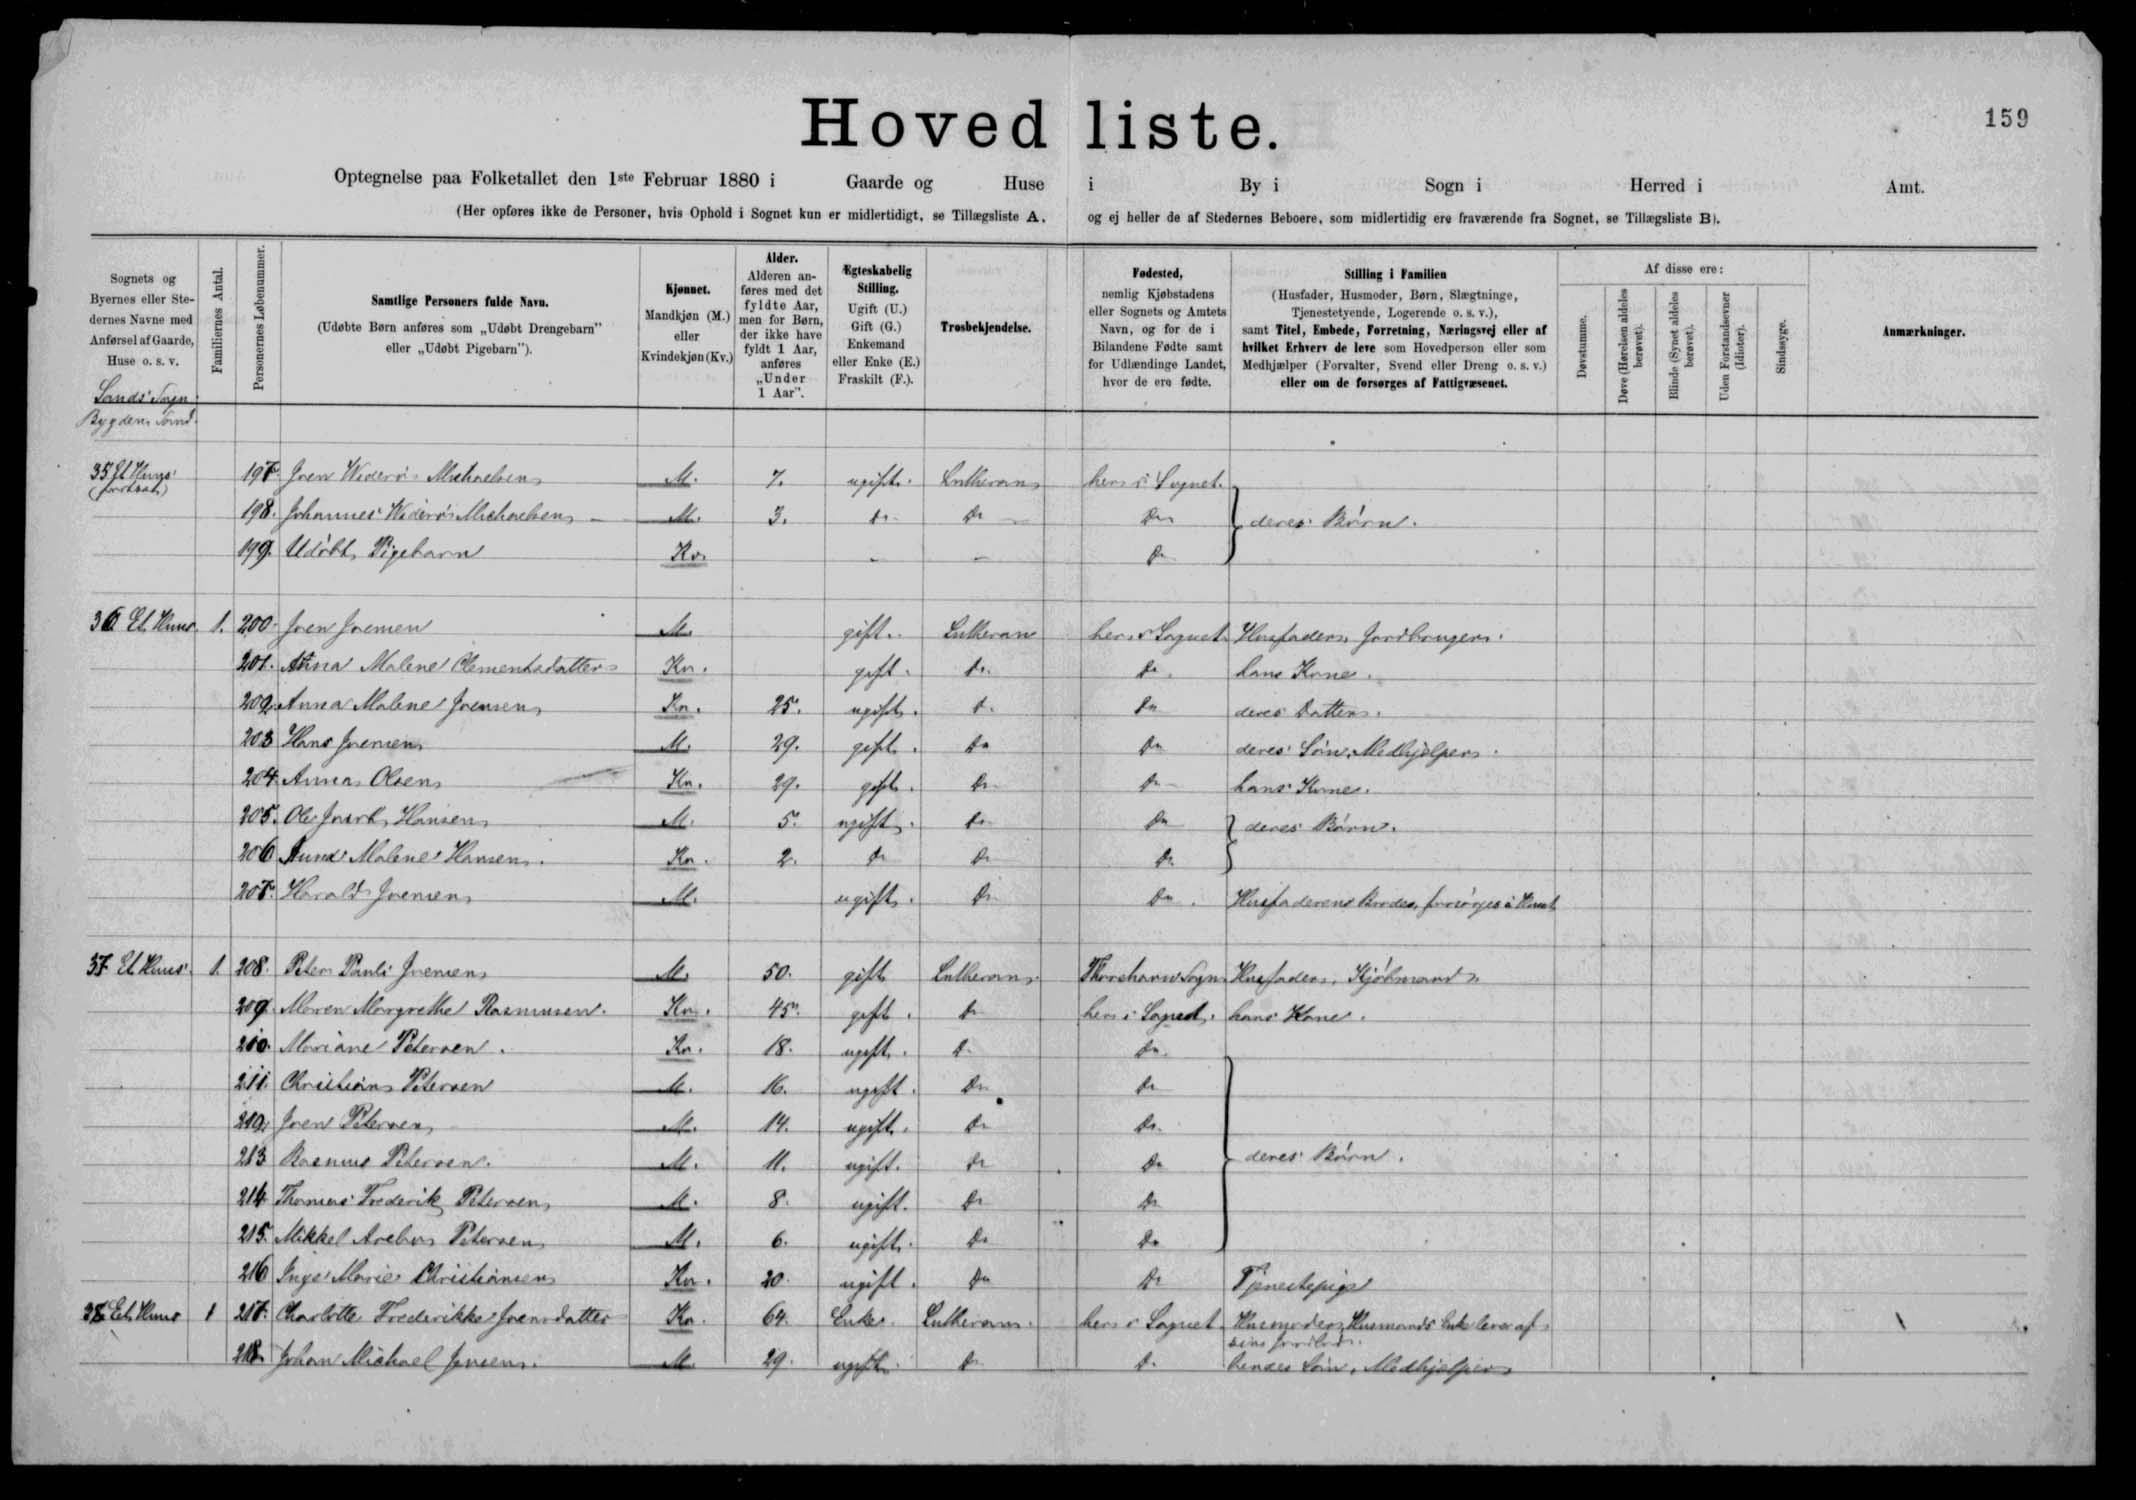 Hovedliste.
159
Optegnelse paa Folketallet den 1ste Februar 1880 i Gaarde og Huse i By i Sogn i Herred i Amt.
(Her opføres ikke de Personer, hvis Ophold i Sognet kun er midlertidigt, se Tillægsliste A, og ej heller de af Stedernes Beboere, som midlertidig ere fraværende fra Sognet, se Tillægsliste B).
Sognets og Byernes eller Stedernes Navne med Anførsel af Gaarde, Huse o. s. v.
Familiernes Antal.
Personernes Løbenummer.
Samtlige Personers fulde Navn.
(Udøbte Børn anføres som „Udøbt Drengebarn” eller „Udøbt Pigebarn”).
Kjønnet.
Mandkjøn (M.) eller Kvindekjøn (Kv.)
Alder.
Alderen anføres med det fyldte Aar, men for Børn, der ikke have fyldt 1 Aar, anføres „Under 1 Aar”.
Ægteskabelig Stilling.
Ugift (U.) Gift (G.) Enkemand eller Enke (E.) Fraskilt (F.).
Trosbekjendelse.
Fødested,
nemlig Kjøbstadens eller Sognets og Amtets Navn, og for de i Bilandene Fødte samt for Udlændinge Landet, hvor de ere fødte.
Stilling i Familien
(Husfader, Husmoder, Børn, Slægtninge, Tjenestetyende, Logerende o. s. v.),
samt Titel, Embede, Forretning, Næringsvej eller af hvilket Erhverv de leve som Hovedperson eller som Medhjælper (Forvalter, Svend eller Dreng o. s. v.) eller om de forsørges af Fattigvæsenet.
Af disse ere:
Døvstumme.
Døve (Hørelsen aldeles berøvet).
Blinde (Synet aldeles berøvet).
Uden Forstandsevner (Idioter).
Sindssyge.
Anmærkninger.
Sands Sogn
Bygden Sand.
35 Et Huus (fortsat) 197. Joen Widerø Michaelsen M. 7. ugift. Lutheran her i Sognet.
198. Johannes Widerø Michaelsen M. 3. Do Do Do deres Børn.
199. Udøbt Pigebarn Kv. - - Do
36 Et Huus. 1. 200. Joen Joensen M. gift. Lutheran her i Sognet. Husfader, Jordbruger.
201. Anna Malene Clementsdatter Kv. gift. Do Do hans Kone.
202. Anna Malene Joensen Kv. 25. ugift. Do Do deres Datter.
203 Hans Joensen M. 29. gift. Do Do deres Søn, Medhjelper.
204. Anna Olsen Kv. 29. gift. Do Do hans Kone.
205. Ole Hansen M. 5. ugift. Do Do deres Børn.
206 Anna Malene Hansen. Kv. 2. Do Do Do
207. Harald Joensen M. ugift. Do Do Husfaderens Broder, forsørges i Huset
37 Et Huus. 1. 208. Peter Pauli Joensen M. 50. gift Lutheran Thorshavn Sogn Husfader, Kjøbmand
209. Maren Margrethe Rasmussen. Kv. 45. gift. Do her i Sognet. hans Kone.
210. Mariane Petersen. Kv. 18. ugift. Do Do
211. Christian Petersen M. 16. ugift. Do Do
212. Joen Petersen M. 14. ugift. Do Do
213 Rasmus Petersen. M. 11. ugift. Do Do deres Børn.
214 Thomas Frederik Petersen M. 8. ugift. Do Do
215. Mikkel Petersen M. 6. ugift. Do Do
216 Inge Marie Christiansen Kv. 20. ugift. Do Do Tjenestepige
38 Et Huus 1 217. Charlotte Frederikke Joensdatter Kv. 64. Enke. Lutheran. her i Sognet. Husmoder, Husmands Enke lever af
sin Jordlod.
218. Johan Michael Jensen. M. 29. ugift. Do Do hendes Søn, Medhjelper